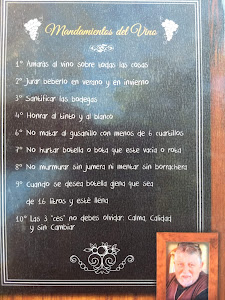 Mandamientos del Vino
1º Amarás al vino sobre todas las cosas
2º Jurar beberlo en verano y en invierno
3º Santificar las bodegas
4º Honrar al tinto y al blanco
6º No matar al gusanillo con menos de 6 cuartillos
7º No hurtar botella o bota que este vacía o rota
8º No murmurar sin jumera ni mentar sin borrachera
9º Cuando se desea botella ajena que sea
de 16 litros y esté llena
10º Las 3 "ces" no debes olvidar: Calma, Calidad
y sin Cambiar